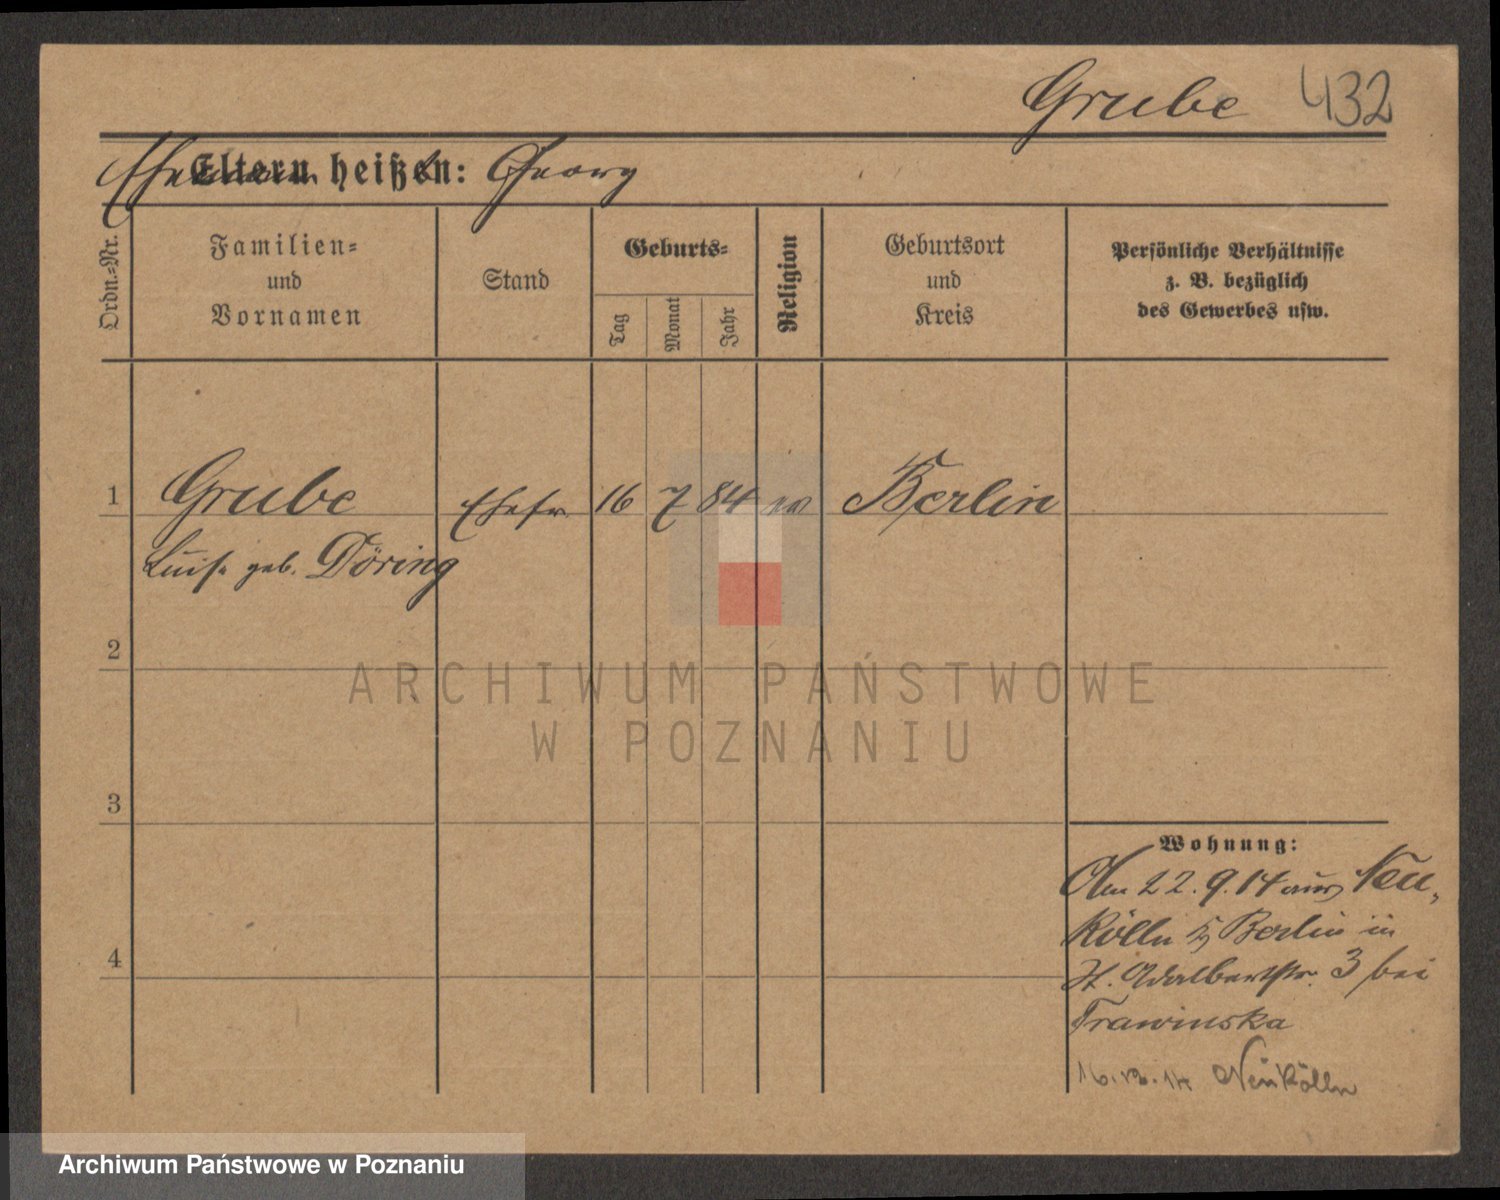 Grube 432
Eltern heißen: Georg
Ordn.=Nr.
Familien=
und
Vornamen
Stand
Geburts=
Tag
Monat
Jahr
Religion
Geburtsort
und
Kreis
Persönliche Verhältnisse
z. B. bezüglich
des Gewerbes usw.
1 Grube Ehefr. 16 7 84 Berlin
Luise geb. Döring
2
3
4
Wohnung:
Am 22.9.14 aus Neu-
kölln b/ Berlin in
St. Adalbertstr. 3 bei
Trawinska
Neukölln
ARCHIWUM PAŃSTWOWE
W POZNANIU
Archiwum Państwowe w Poznaniu